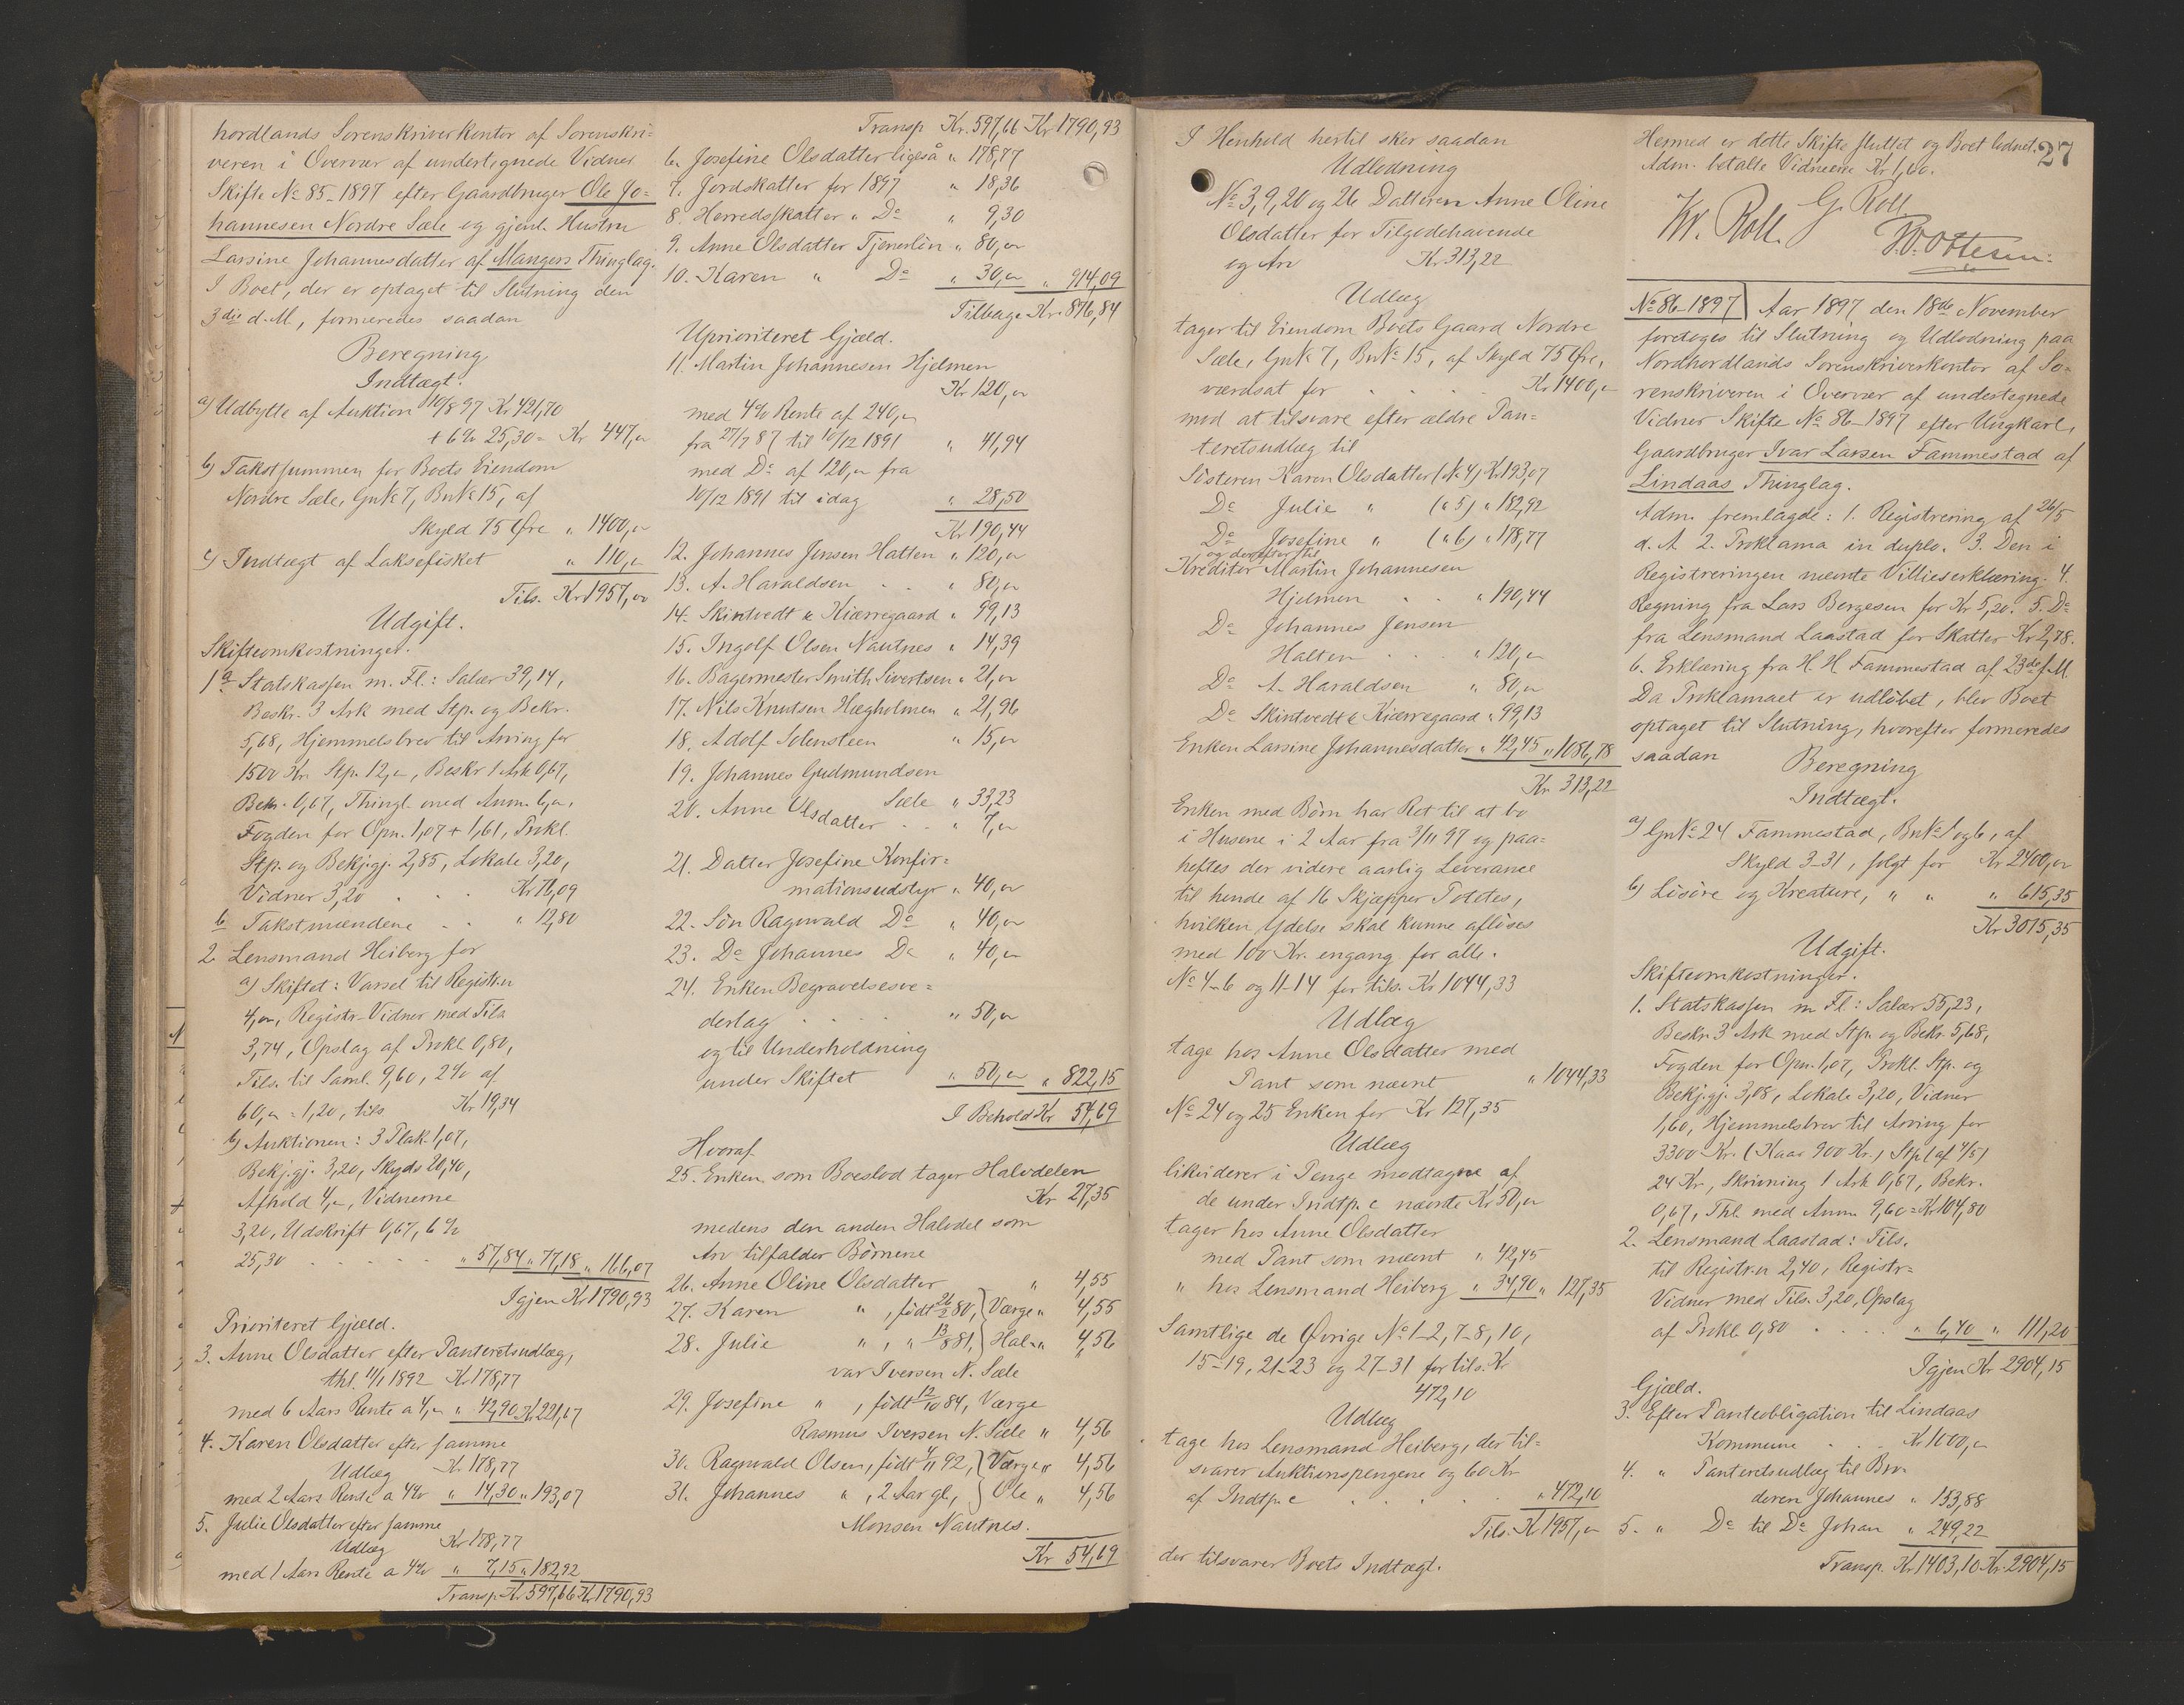 hordlands Sorenskriverkontor af Sorenskri=
veren i Overvær af undertegnede Vidner
Skifte No 85-1897 efter Gaardbruger Ole Jo=
hannesen Nordre Sæle og gjenl. Hustru
Lassine Johannesdatter af Mangers Thinglag.
I Boet, der er optaget til Slutning den
3die d. M., formeredes saadan
Beregning
Indtægt.
a) Udbytte af Auktion 10/8 97 Kr 421,70
+ 6% 25,30 = Kr 447,00
b) Takstsummen for Boets Eiendom
Nordre Sæle, GnNo 7, BnNo 15, af
Skyld 75 Øre " 1400,00
c) Indtægt af Laksefisket " 110,00
Tils. Kr 1957,00
Udgift.
Skifteomkostninger.
1 a Statskassen m. Fl.: Salær 39,14,
Beskr. 3 Ark med Stp. og Bekr.
5,68, Hjemmelsbrev til Arving for
1500 Kr. Stp. 12,00, Beskr 1 Ark 0,67,
Bekr. 0,67, Thingl. med Anm. 6,00,
Fogden for Opn. 1,07 + 1,61, Prokl.
Stp. og Bekj.gj. 2,85, Lokale 3,20,
Vidner 3,20 . . Kr 76,09
b Takstmændene . . " 12,80
2 Lensmand Heiberg for
a) Skiftet: Varsel til Registr.n
4,00, Registr-Vidner med Tils
3,74, Opslag af Prokl 0,80,
Tils. til Saml. 9,60, 2% af
60,00 = 1,20, tils. Kr 19,34
b) Auktionen: 3 Plak. 1,07,
Bekj.gj. 3,20, Skyds 20,40,
Afhold 4,00, Vidnerne
3,20, Udskrift 0,67, 6%
25,30 . . . . " 57,84 " 77,18 " 166,07
Igjen Kr 1790,93
Prioriteret Gjæld.
3. Anne Olsdatter efter Panteretsudlæg,
thl. 11/1 1892 Kr 178,77
med 6 Aars Rente a 4,00 " 42,90 Kr 221,67
4. Karen Olsdatter efter samme
Udlæg Kr 178,77
med 2 Aars Rente a 4% " 14,30 " 193,07
5. Julie Olsdatter efter samme
Udlæg Kr 178,77
med 1 Aars Rente a 4% " 7,15 " 182,92
Transp. Kr 597,66 Kr 1790,93
Transp Kr. 597,66 Kr 1790,93
6. Josefine Olsdatter ligeså " 178,77
7. Jordskatter for 1897 " 18,36
8. Herredsskatter " Do " 9,30
9. Anne Olsdatter Tjenerløn " 80,00
10. Karen " Do " 30,00 " 914,09
Tilbage Kr. 876,84
Uprioriteret Gjæld.
11. Martin Johannesen Hjelmen
Kr 120,00
med 4% Rente af 240,00
fra 27/7 87 til 10/12 1891 " 41,94
med Do af 120,00 fra
10/12 1891 til idag " 28,50
Kr 190,44
12. Johannes Jensen Hatten " 120,00
13. A. Haraldsen . . " 80,00
14. Skintvedt & Kiærregaard " 99,13
15. Ingolf Olsen Nautnes " 14,39
16. Bagermester Smith Sivertsen " 21,00
17. Nils Knutsen Hægholmen " 21,96
18. Adolf Solensteen " 15,00
19. Johannes Gudmundsen
Sæle " 33,23
20. Anne Olsdatter . . " 7,00
21. Datter Josefine Konfir=
mationsudstyr " 40,00
22. Søn Ragnvald Do " 40,00
23. Do Johannes Do " 40,00
24. Enken Begravelsesve=
derlag . . . . " 50,00
og til Underholdning
under Skiftet " 50,00 " 822,15
I Behold Kr 54,69
Hvoraf
25. Enken som Boeslod tager Halvdelen
Kr 27,35
medens den anden Halvdel som
Arv tilfalder Børnene
26. Anne Oline Olsdatter " 4,55
27. Karen " , født 26/2 80, } Værge " 4,55
28. Julie " , " 13/8 81, } Hal- " 4,56
var Iversen N. Sæle
29. Josefine " , født 12/10 84, Værge
Rasmus Iversen N. Sæle " 4,56
30. Ragnvald Olsen, født 4/11 92, } Værge " 4,56
31. Johannes " , 2 Aar gl., } Ole " 4,56
Monsen Nautnes.
Kr 54,69
I Henhold hertil sker saadan
Udlodning
No 3, 9, 20 og 26 Datteren Anne Oline
Olsdatter for Tilgodehavende
og Arv Kr. 313,22
Udlæg
tager til Eiendom Boets Gaard Nordre
Sæle, GnNo 7, BnNo 15, af Skyld 75 Øre,
værdsat for . . . . Kr 1400,00
mod at tilsvare efter ældre Pan=
teretsudlæg til
Søsteren Karen Olsdatter (No 4) Kr 193,07
Do Julie " (" 5) " 182,92
Do Josefine " (" 6) " 178,77
og derefter til
Kreditor Martin Johannesen
Hjelmen . . " 190,44
Do Johannes Jensen
Halten . . . " 120,00
Do A. Haraldsen " 80,00
Do Skintvedt & Kiærregaard " 99,13
Enken Lassine Johannesdatter " 42,45 " 1086,78
Kr 313,22
Enken med Børn har Ret til at bo
i Husene i 2 Aar fra 3/11 97 og paa=
heftes der videre aarlig Leverance
til hende af 16 Skjæpper Potetes,
hvilken Ydelse skal kunne afløses
med 100 Kr. engang for alle.
No 4-6 og 11-14 for tils. Kr 1044,33
Udlæg
tage hos Anne Olsdatter med
Pant som nævnt " 1044,33
No 24 og 25 Enken for Kr 127,35
Udlæg
likviderer i Penge modtagne af
de under Indtp. c nævnte Kr 50,00
tager hos Anne Olsdatter
med Pant som nævnt " 42,45
" hos Lensmand Heiberg " 34,90 " 127,35
Samtlige de Øvrige No 1-2, 7-8, 10,
15-19, 21-23 og 27-31 for tils. Kr
472,10
Udlæg
tage hos Lensmand Heiberg, der til=
svarer Auktionspengene og 60 Kr
af Indtp. c . . . . " 472,10
Tils. Kr 1957,00
der tilsvarer Boets Indtægt.
Hermed er dette Skifte sluttet og Boet lodnet. 27
Adm. betalte Vidnerne Kr 1,60.
Kr. Roll. G. Roll
W. Ottesen.
No 86-1897 Aar 1897 den 18de November
foretoges til Slutning og Udlodning paa
Nordhordlands Sorenskriverkontor af So=
renskriveren i Overvær af undertegnede
Vidner Skifte No 86-1897 efter Ungkarl,
Gaardbruger Ivar Larsen Fammestad af
Lindaas Thinglag.
Adm. fremlagde: 1. Registrering af 26/5
d. A. 2. Proklama in duplo. 3. Den i
Registreringen nævnte Villieserklæring. 4.
Regning fra Lars Børgesen for Kr 5,20. 5. Do
fra Lensmand Laastad for Skatter Kr 2,78.
6. Erklæring fra H. H. Fammestad af 23de f. M.
Da Proklamaet er udløbet, blev Boet
optaget til Slutning, hvorefter formeredes
saadan Beregning
Indtægt.
a) GnNo 24 Fammestad, BnNo 1 og 6, af
Skyld 3-31, solgt for Kr 2400,00
b) Løsøre og Kreature, " " " 615,35
Kr 3015,35
Udgift.
Skifteomkostninger.
1. Statskassen m Fl: Salær 55,23,
Beskr. 3 Ark med Stp. og Bekr. 5,68,
Fogden for Opn. 1,07, Prokl. Stp. og
Bekj.gj. 3,08, Lokale 3,20, Vidner
1,60, Hjemmelsbrev til Arving for
3300 Kr. (Kaar 900 Kr.) Stp (af 4/5)
24 Kr, Skrivning 1 Ark 0,67, Bekr.
0,67, Thl. med Anm. 9,60 = Kr 104,80
2. Lensmand Laastad: Tils.
til Registr.n 2,40, Registr=
Vidner med Tils. 3,20, Opslag
af Prokl 0,80 . . . . " 6,40 " 111,20
Igjen Kr 2904,15
Gjæld.
3. Efter Panteobligation til Lindaas
Kommune . . . Kr 1000,00
4. " Panteretsudlæg til Bro-
deren Johannes " 153,88
5. " Do til Do Johan " 249,22
Transp. Kr 1403,10 Kr. 2904,15